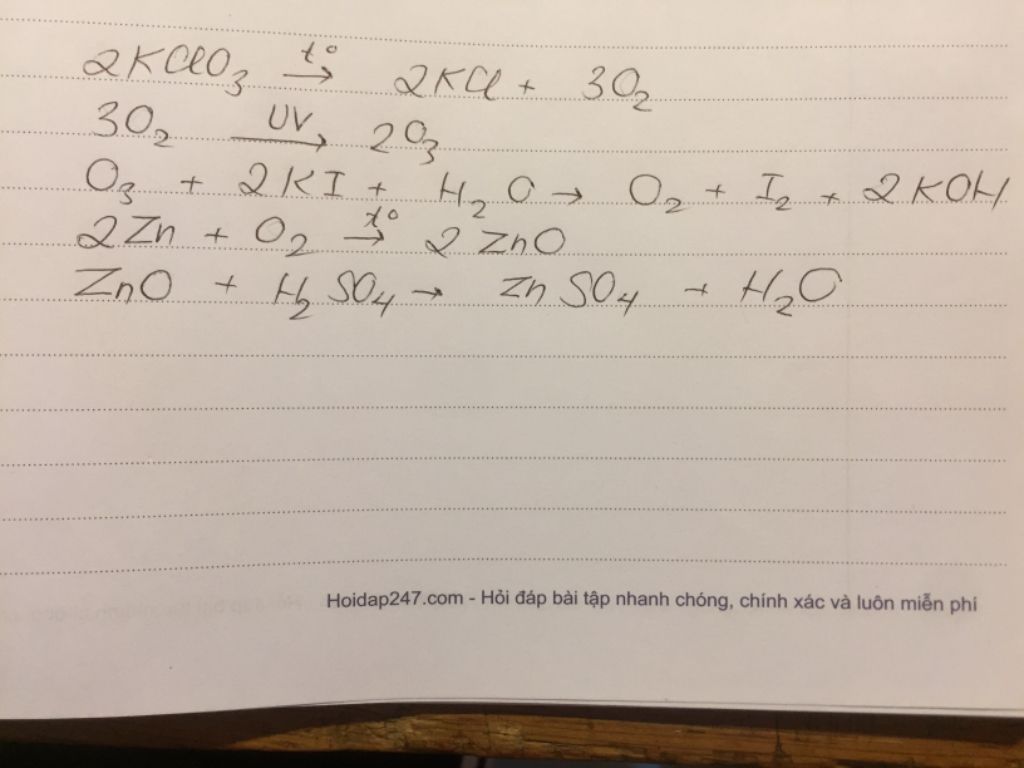 2KClO₃ →(t°) 2KCl + 3O₂
3O₂ →(UV) 2O₃
O₃ + 2KI + H₂O → O₂ + I₂ + 2KOH
2Zn + O₂ →(t°) 2ZnO
ZnO + H₂SO₄ → ZnSO₄ + H₂O
Hoidap247.com - Hỏi đáp bài tập nhanh chóng, chính xác và luôn miễn phí